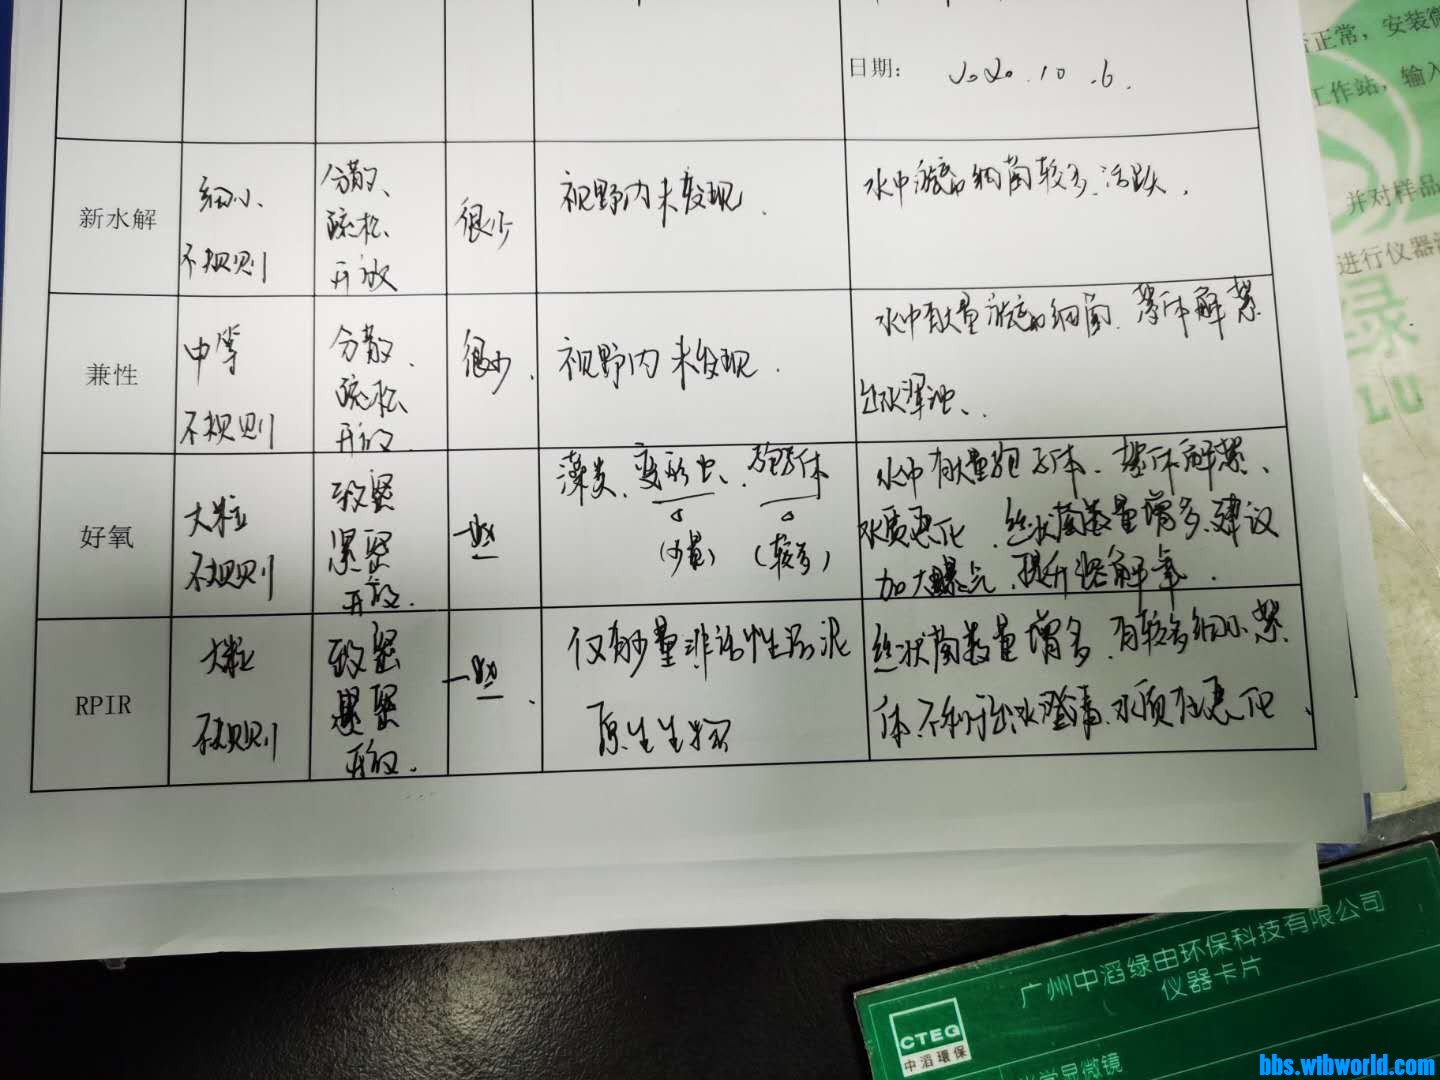 日期： 2020.10.6.
新水解
细小、
不规则
分散、
疏松、
开放
很少
视野内未发现.
水中游离的细菌较多、活跃.
兼性
中等
不规则
分散、
疏松、
开放.
很少.
视野内未发现.
水中有大量游离的细菌、絮体解絮
出水浑浊、.
好氧
大粒
不规则
致密
紧密
开放.
一些
藻类、变形虫、孢子体
(少量) (较多)
水中有大量孢子体、絮体解絮、
水质恶化、丝状菌数量增多、建议
加大曝气、提升溶解氧.
RPIR
大粒
不规则
致密
紧密
开放.
一些.
仅有少量非活性污泥
原生生物
丝状菌数量增多、有较多细小絮
体、不利于出水澄清、水质在恶化、
正常，安装微
工作站，输入
并对样品
进行仪器
绿
LU
广州中滔绿由环保科技有限公司
仪器卡片
CTEG
中滔環保
光学显微镜
bbs.wtbworld.com